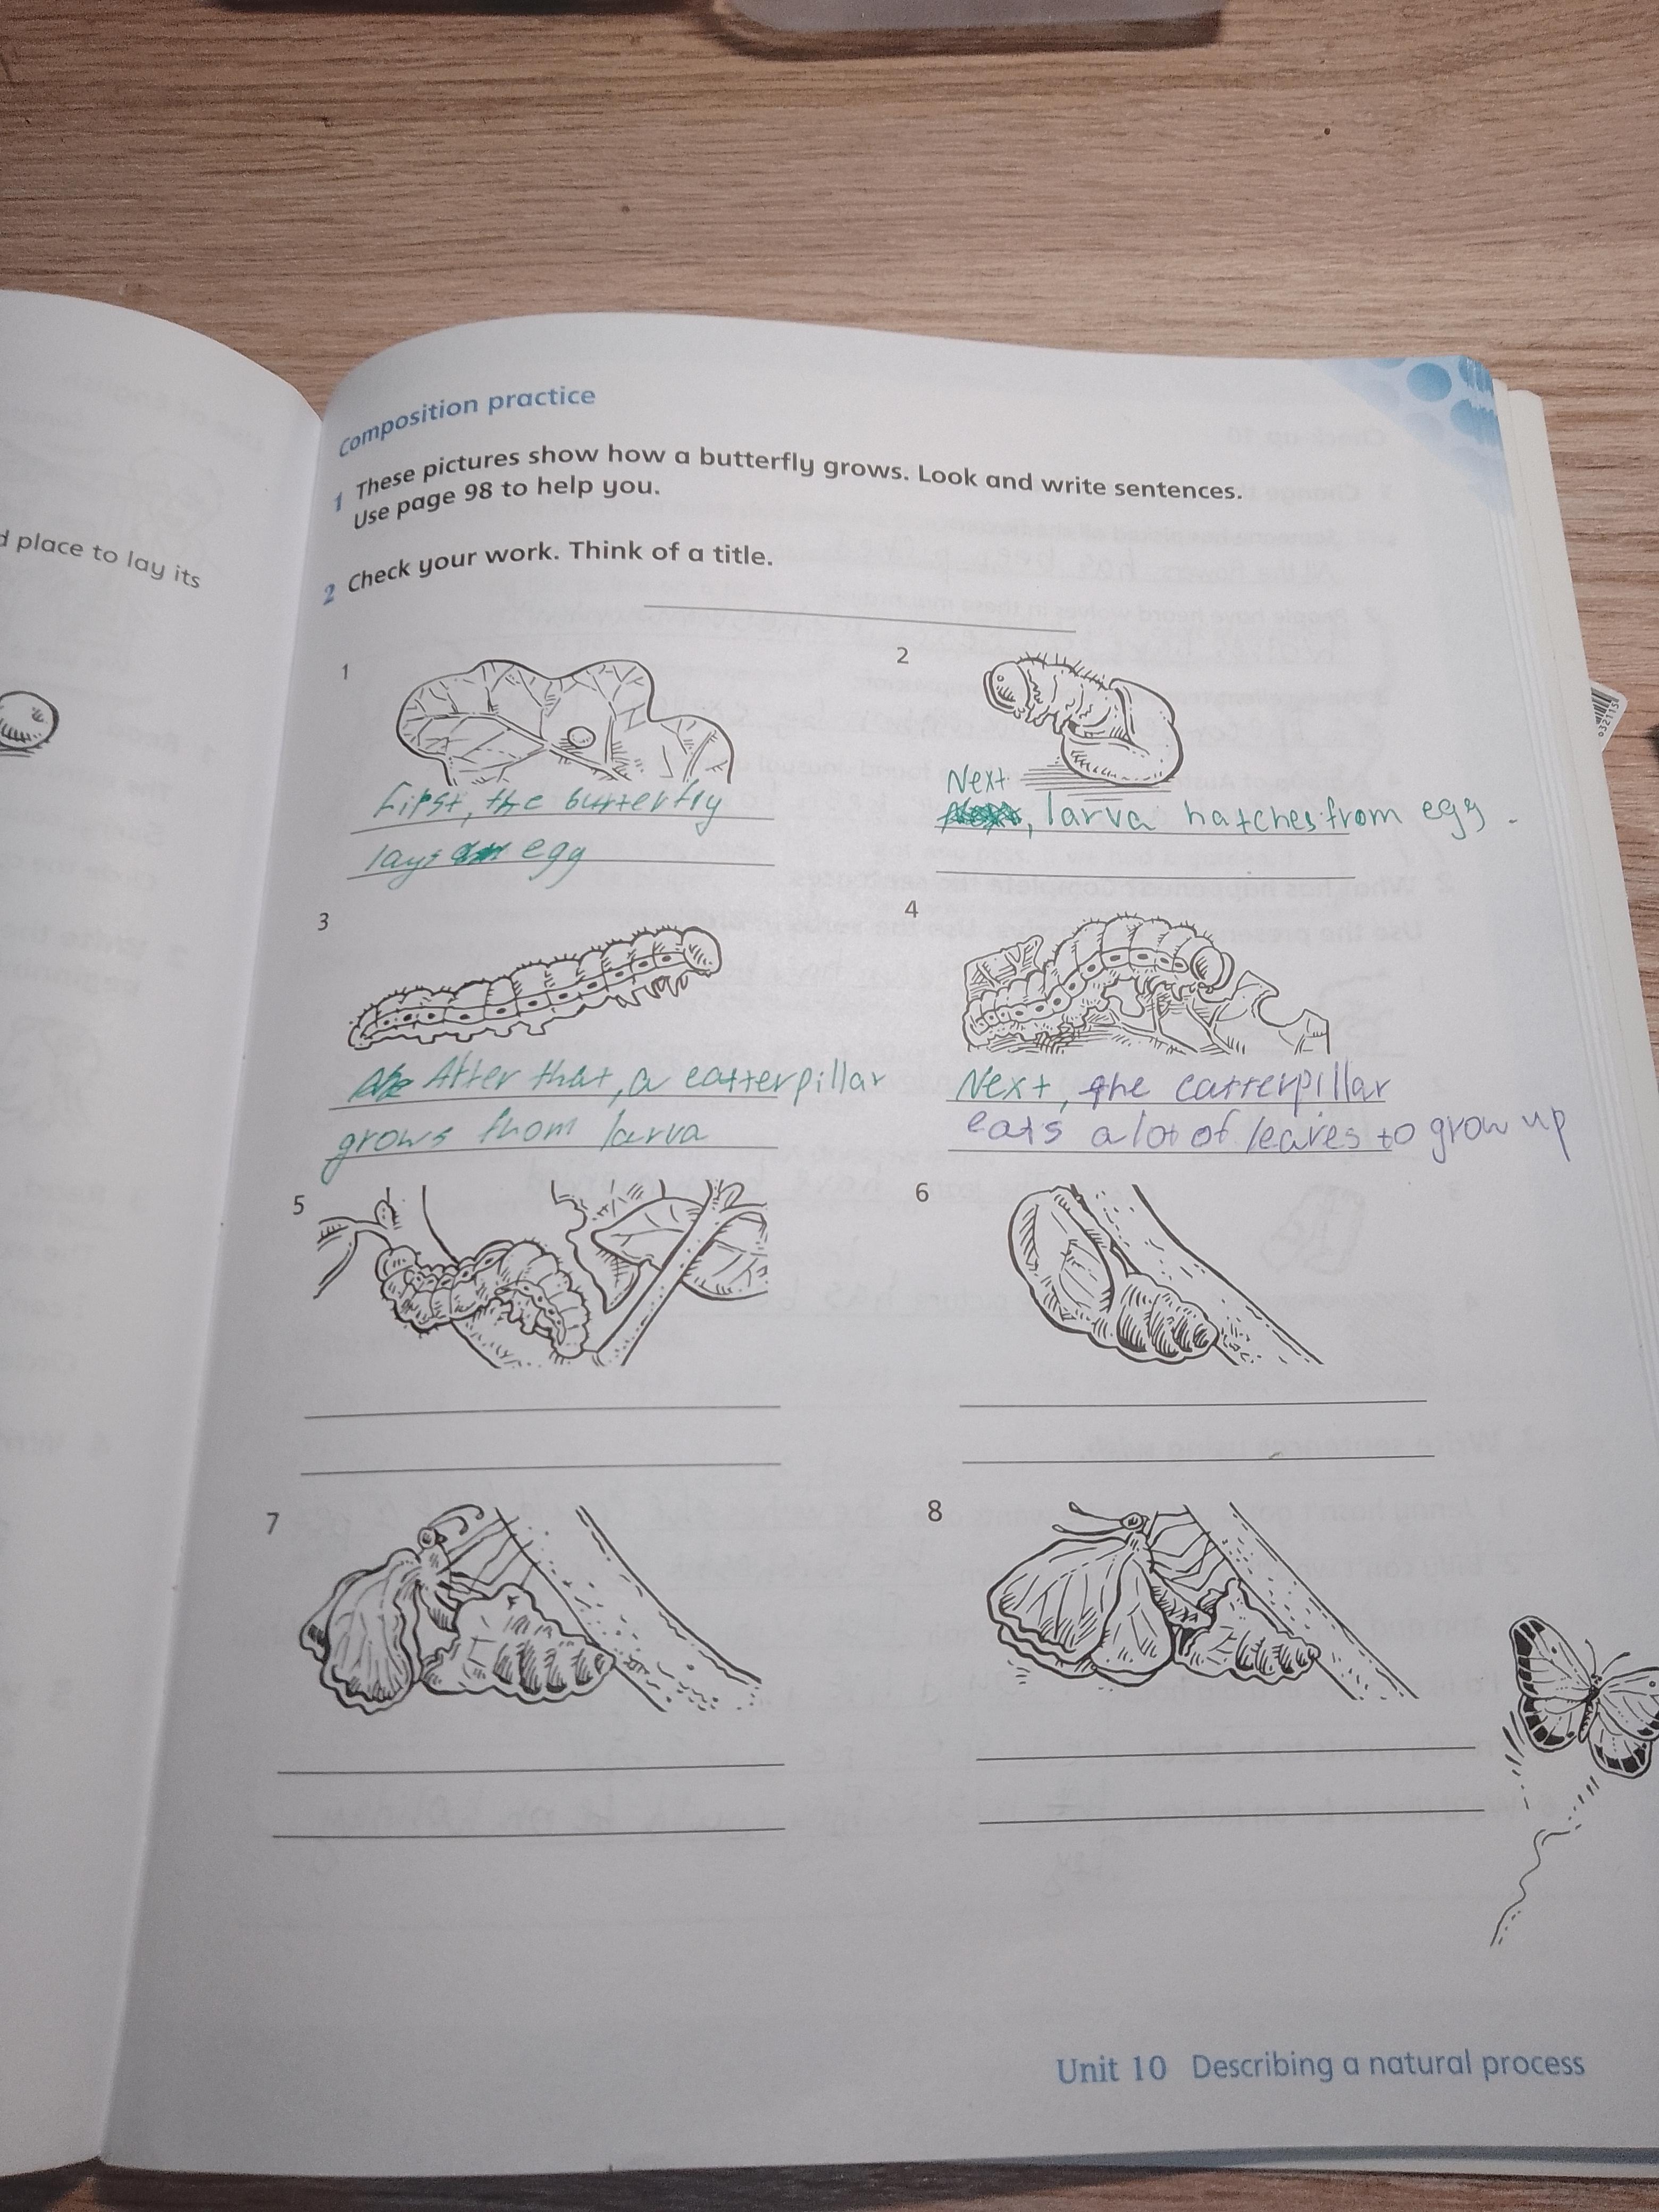 d place to lay its
Composition practice
1 These pictures show how a butterfly grows. Look and write sentences.
Use page 98 to help you.
2 Check your work. Think of a title.
1
First, the butterfly
lays egg
2
Next
, larva hatches from egg.
3
After that, a catterpillar
grows from larva
4
Next, the catterpillar
eats a lot of leaves to grow up
5
6
7
8
Unit 10 Describing a natural process